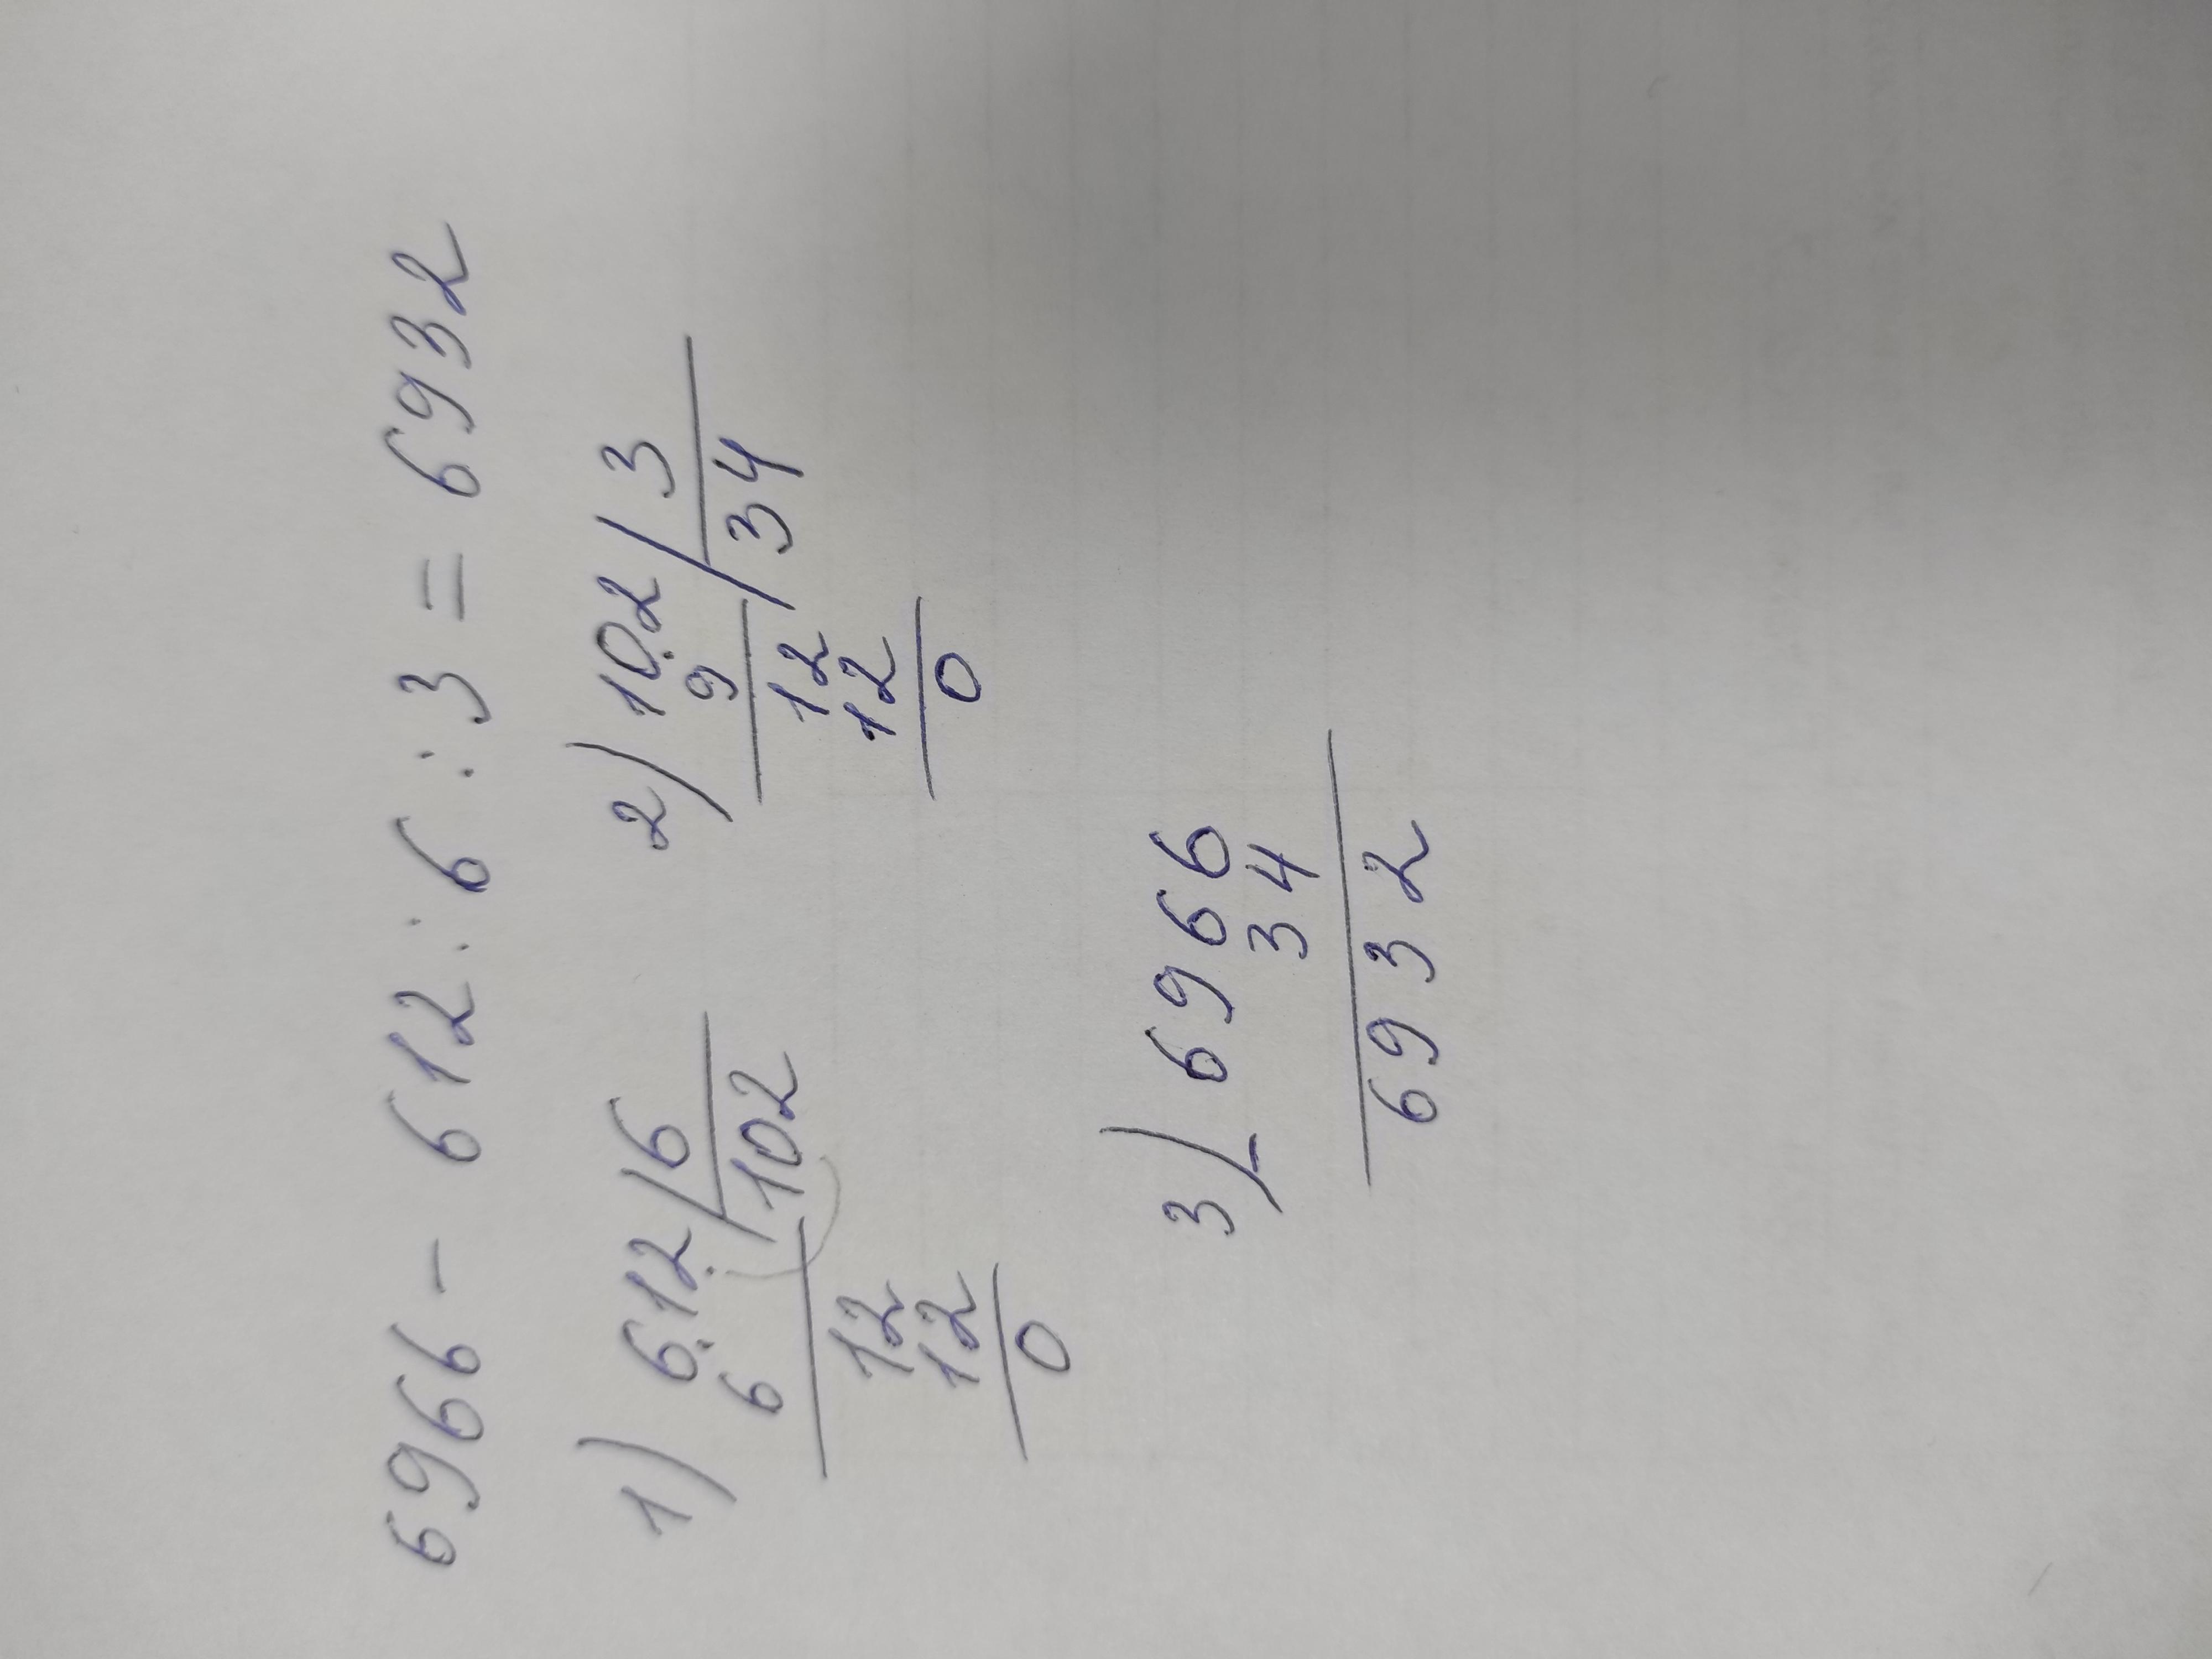 6966 - 612 : 6 : 3 = 6932
1) 612 | 6 2) 102 | 3
6 102 9 34
12 12
12 12
0 0
3) - 6966
34
6932